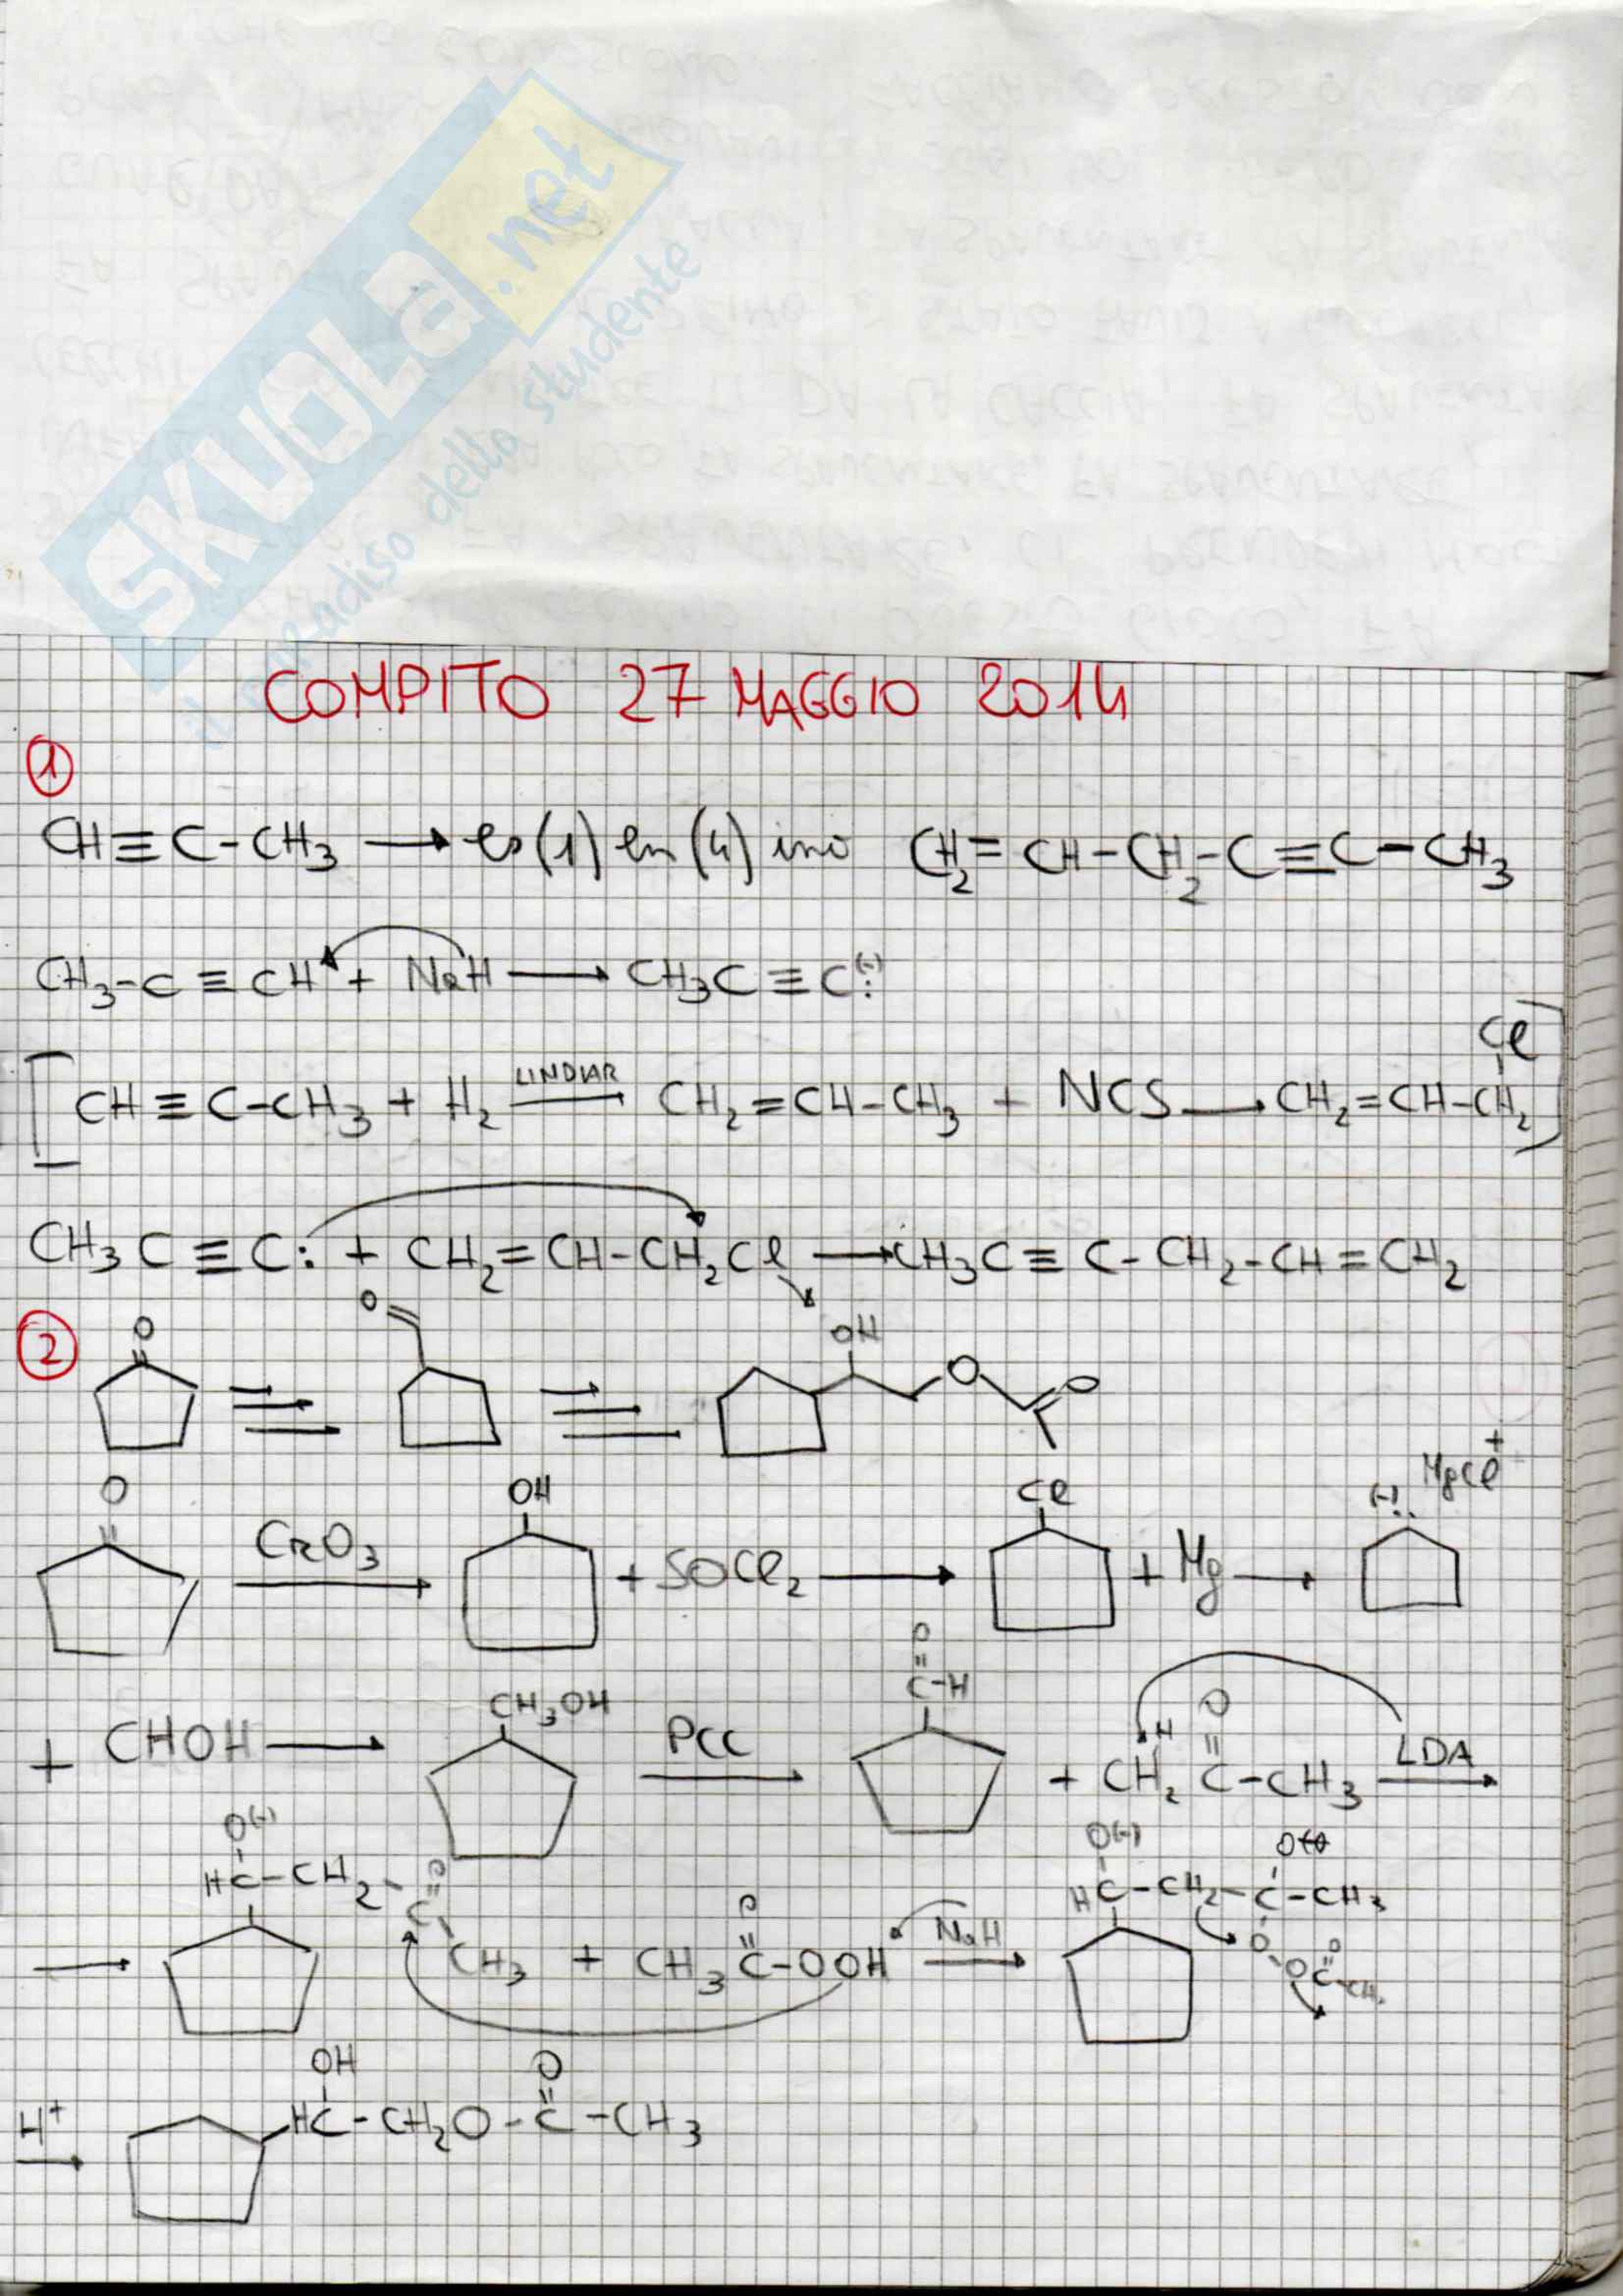 SKUOLA.net
il paradiso dello studente
COMPITO 27 MAGGIO 2014
1
CH≡C-CH3 → es(1) en(4) ino CH2=CH-CH2-C≡C-CH3
CH3-C≡CH + NaH → CH3C≡C(-):
Cl
[CH≡C-CH3 + H2 LINDLAR → CH2=CH-CH3 + NCS → CH2=CH-CH2]
CH3C≡C: + CH2=CH-CH2Cl → CH3C≡C-CH2-CH=CH2
2
O O OH O O
O CrO3 → OH + SOCl2 → Cl + Mg → (-): MgCl+
+ CHOH → CH3OH PCC → O=C-H + CH2 H O=C-CH3 LDA →
→ O(-) HC-CH2-C=O CH3 + CH3C=O-OOH NaH → O(-) HC-CH2-C-CH3 O O OC=O CH3
H+ → OH HC-CH2O-C=O-CH3